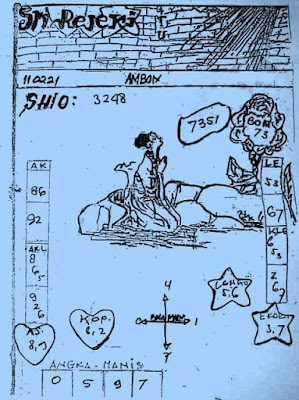 Sri Rejeki
110221 AMBON
SHIO: 3248
7351
BOM
73
AK
86
92
AKL
8
6
5
9
2
6
AS
8,9
KOP
6,2
4
1
7
LE
53
67
KLE
6
53
2
6
5,6
EKOR
3,7
ANGKA-MANIS
0 5 9 7